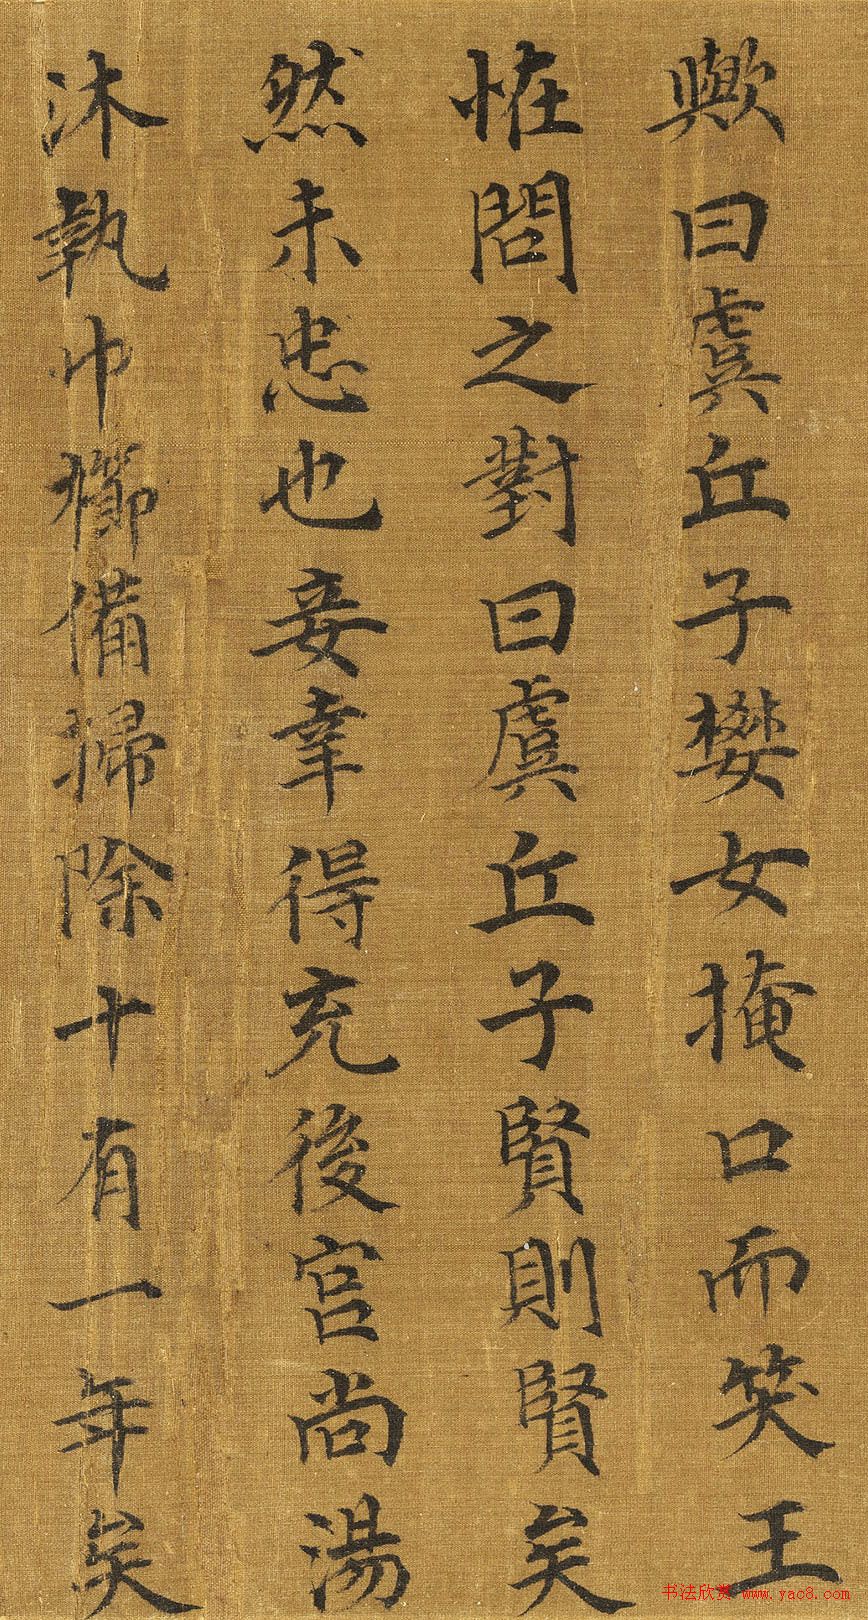 歟曰虞丘子樊女掩口而笑王
恠問之對曰虞丘子賢則賢矣
然未忠也妾幸得充後宮尚湯
沐執巾櫛備掃除十有一年矣
书法欣赏 www.yac8.com